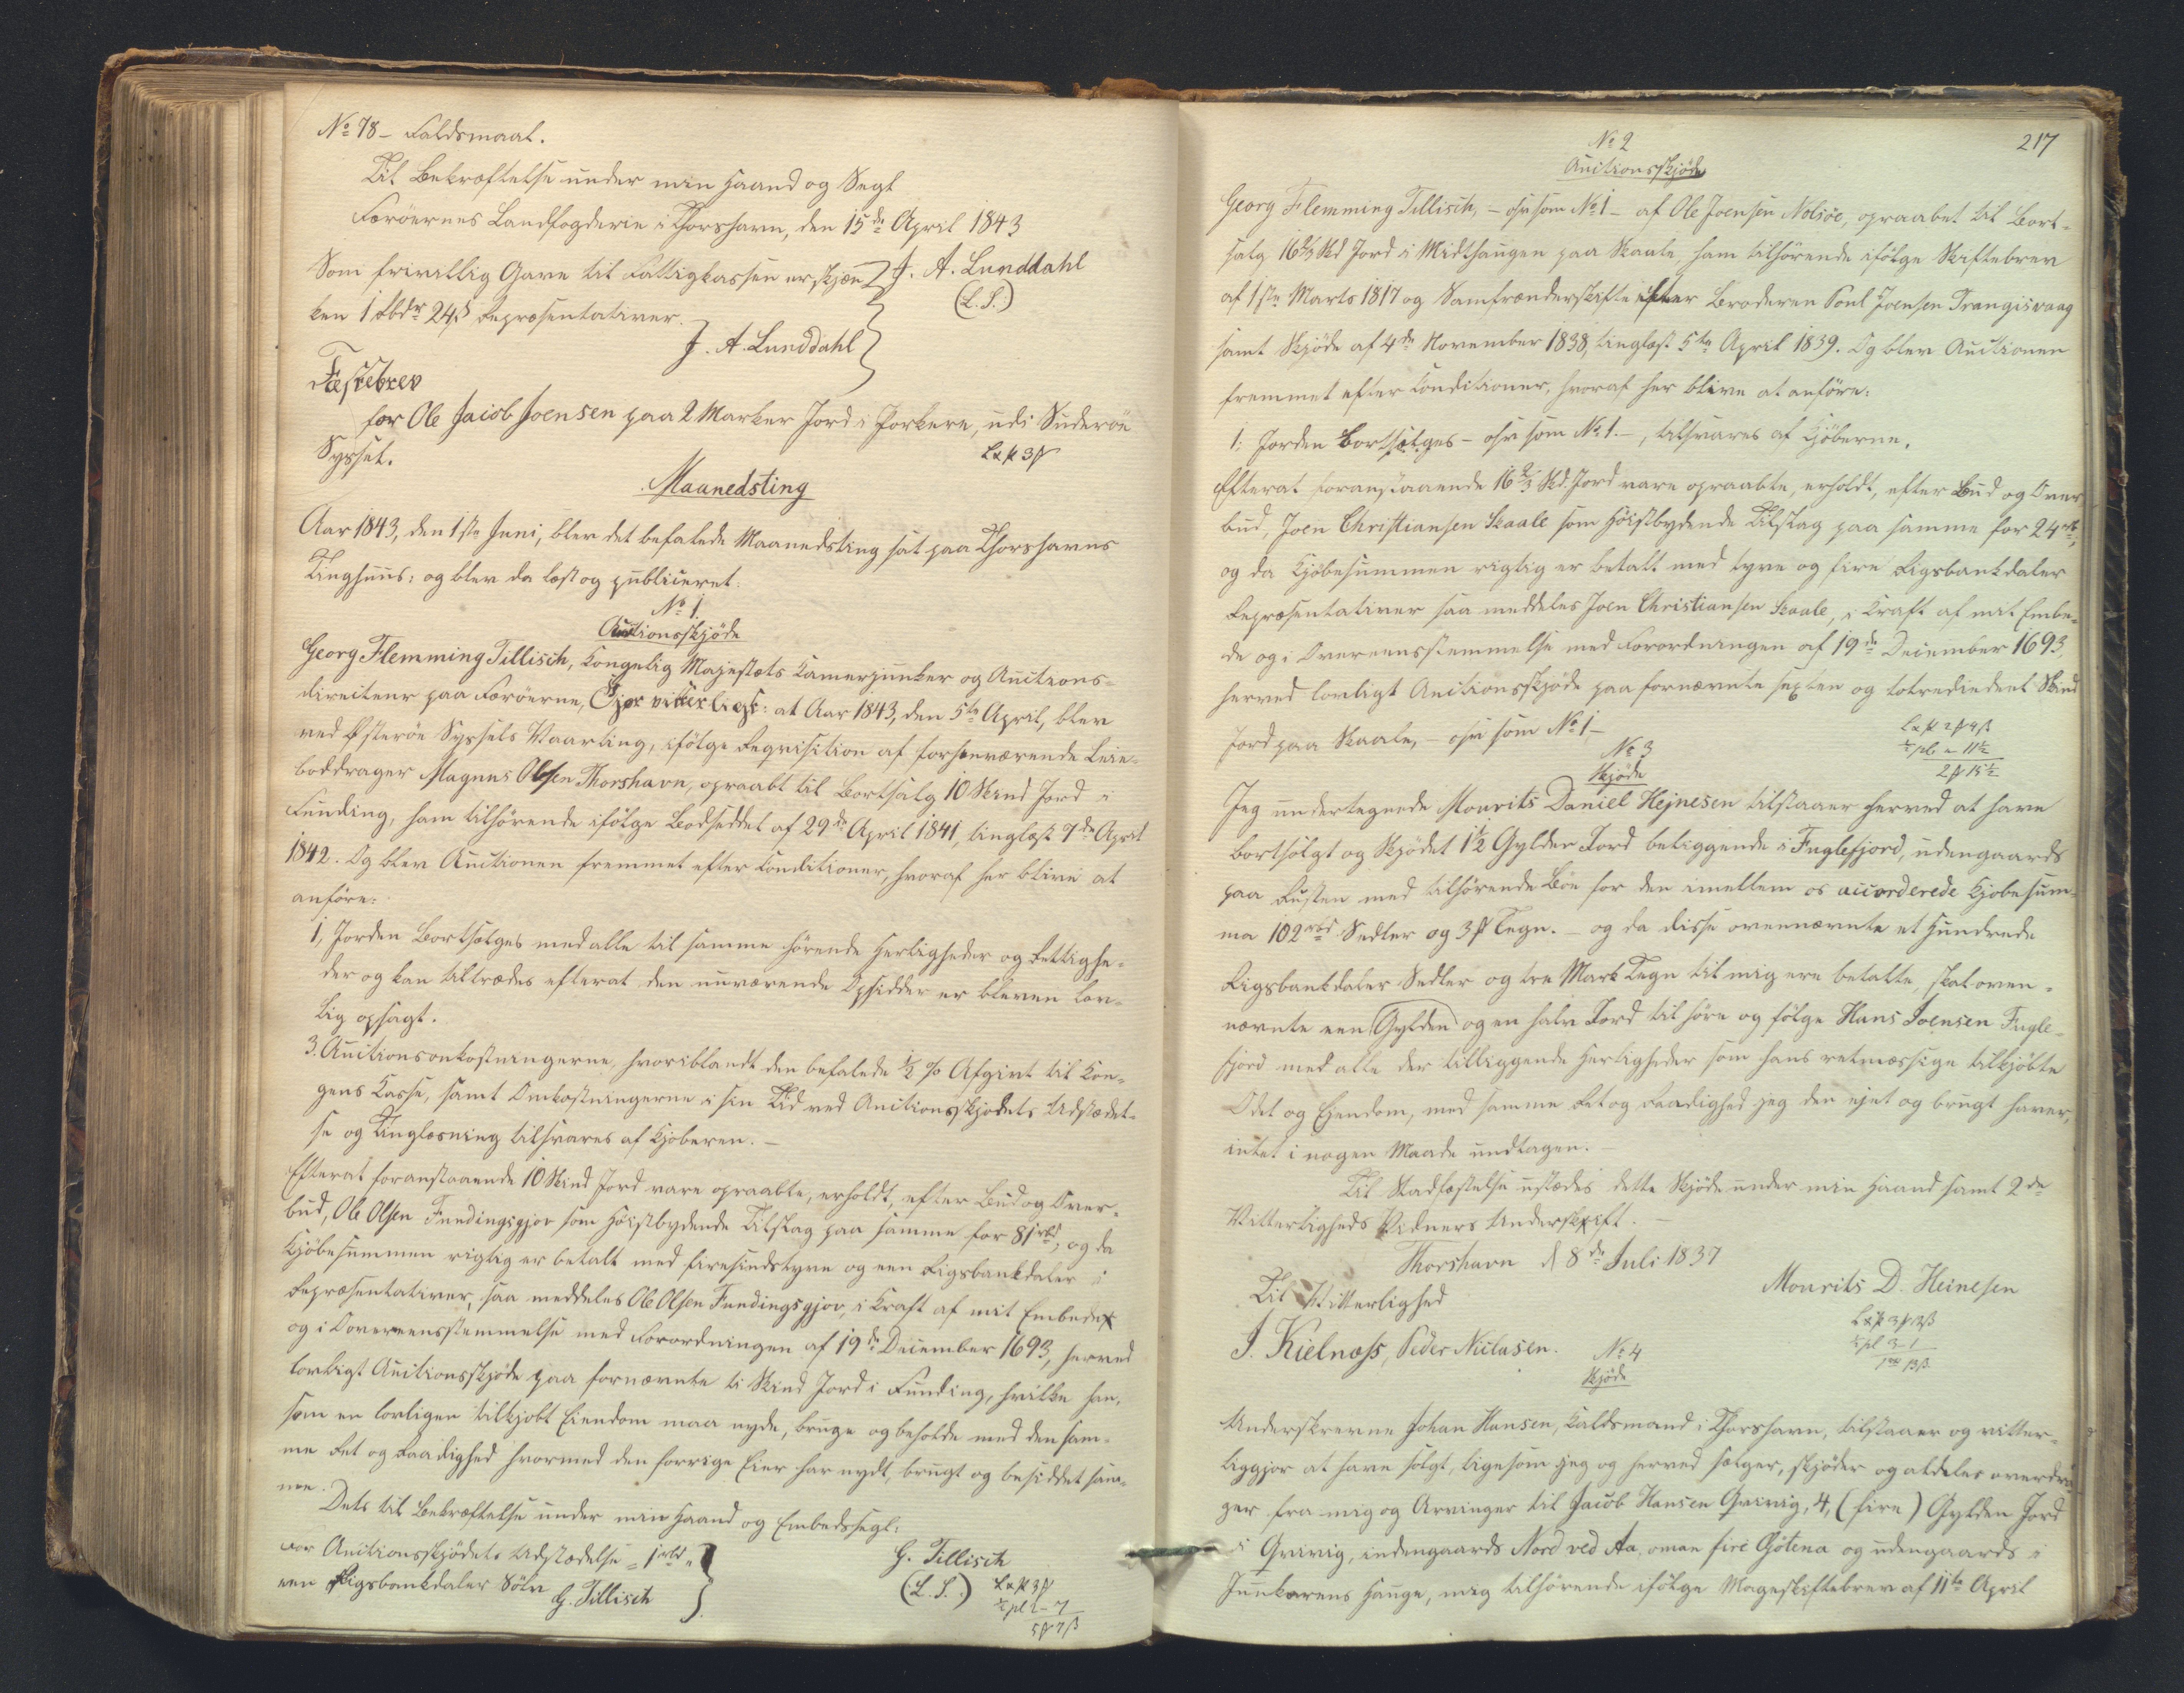 No 78 - Faldsmaal.
Til Bekræftelse under min Haand og Segl
Færöernes Landfogderie i Thorshavn, den 15de April 1843
J. A. Lunddahl
(L. S.)
Som frivillig Gave til Fattigkassen er skjæn-
ken 1 Rbdr 24 ß Repræsentativer.
J. A. Lunddahl
Fæstebrev
for Ole Jacob Joensen paa 2 Marker Jord i Porkere, udi Suderöe
Syssel.
Maanedsting
Aar 1843, den 1ste Juni, blev det befalede Maanedsting sat paa Thorshavns
Tinghuus: og blev da læst og publiceret:
No 1.
Auctionsskjöde
Georg Flemming Tillisch, Kongelig Majestæts Kamerjunker og Auctions-
directeur paa Færöerne, Gjør vitterligt: at Aar 1843, den 5te April, blev
ved Østeröe Syssels Vaarting, ifölge Reqvisition af forhenværende Leie-
boddrager Magnus Olsen Thorshavn, opraabt til Bortsalg 10 Skind Jord i
Funding, ham tilhörende ifölge Bodseddel af 29de April 1841, tinglæst 7de April
1842. Og blev Auctionen fremmet efter Conditioner, hvoraf her blive at
anföre:
1, Jorden bortsælges med alle til samme hörende Herligheder og Rettighe-
der og kan tiltrædes efterat den nuværende Opsidder er bleven lov-
lig opsagt.
3. Auctionsonkostningerne, hvoriblandt den befalede ½ % Afgivt til Kon-
gens Casse, samt Omkostningerne i sin Tid ved Auctionsskjödets Udstædel-
se og Tinglæsning tilsvares af Kjöberen. -
Efterat foranstaaende 10 Skind Jord vare opraabte, erholdt, efter Bud og Over-
bud, Ole Olsen Fundingsgjov som Höistbydende Tilslag paa samme for 81 rbd; og da
Kjöbesummen rigtig er betalt med firesindstyve og een Rigsbankdaler i
Repræsentativer, saa meddeles Ole Olsen Fundingsgjov, i Kraft af mit Embede
og i Overeensstemmelse med Forordningen af 19de December 1693, herved
lovligt Auctionsskjöde paa fornævnte ti Skind Jord i Funding, hvilke han,
som en lovligen tilkjobt Eiendom maa nyde, bruge og beholde med den sam-
me Ret og Raadighed hvormed den forrige Eier har nydt, brugt og besiddet sam-
me.
Dets til Bekræftelse under min Haand og Embedssegl:
G. Tillisch
(L. S.)
For Auctionsskjödets Udstædelse = 1 rbd =
een Rigsbankdaler Sölv
G. Tillisch
217
No 2
Auctionsskjöde
Georg Flemming Tillisch, - osv som No 1 - af Ole Joensen Nolsöe, opraabet til Bort-
salg 16⅔ Skd Jord i Midthaugen paa Skaale, ham tilhörende ifölge Skiftebrev
af 1ste Marts 1817 og Samfrænderskifte efter Broderen Poul Joensen Trangisvaag
samt Skjöde af 4de November 1838, tinglæst 5te April 1839. Og blev Auctionen
fremmet efter Conditioner, hvoraf her blive at anföre:
1: Jorden bortsælges - osv som No 1. -, tilsvares af Kjöberne.
Efterat foranstaaende 16⅔ Skd. Jord vare opraabte, erholdt, efter Bud og Over-
bud, Joen Christiansen Skaale som Höistbydende Tilslag paa samme for 24 rbd,
og da Kjöbesummen rigtig er betalt med tyve og fire Rigsbankdaler
Repræsentativer saa meddeles Joen Christiansen Skaale, i Kraft af mit Embe-
de og i Overeensstemmelse med Forordningen af 19de December 1693
herved lovligt Auctionsskjöde paa fornævnte sexten og totrediedeel Skind
Jord paa Skaale, - osv som No 1 -
No 3
Skjöde
Jeg undertegnede Mourits Daniel Hejnesen tilstaaer herved at have
bortsölgt og Skjödet 1½ Gylder Jord beliggende i Fuglefjord, udengaards
paa Rusten med tilhörende Böe for den imellem os accorderede Kjobesum-
ma 102 rbd Sedler og 3 ₻ Tegn. - og da disse ovennævnte et Hundrede
Rigsbankdaler Sedler og tre Mark Tegn til mig ere betalte, skal oven-
nævnte een Gylden og en halv Jord til höre og fölge Hans Joensen Fugle-
fjord med alle der tilliggende Herligheder som hans retmæssige tilkjöbte
Odel og Ejendom, med samme Ret og Raadighed jeg den ejet og brugt haver,
intet i nogen Maade undtagen. -
Til Stadfæstelse udstædes dette Skjöde under min Haand samt 2de
Vitterligheds Vidners Underskrift. -
Thorshavn d 8de Juli 1837
Mourits D. Heinesen
Til Vitterlighed
J. Kielnæss, Peder Niclasen.
No 4
Skjöde
Underskrevne Johan Hansen, Kaldsmand i Thorshavn, tilstaaer og vitter-
liggjør at have solgt, ligesom jeg og herved sælger, skjöder og aldeles overdra-
ger fra mig og Arvinger til Jacob Hansen Qvivig, 4, (fire) Gylden Jord
i Qvivig, indengaards Nord ved Aa, oman fire Götena og udengaards i
Junkarens Hauge, mig tilhörende ifölge Mageskiftebrev af 11te April